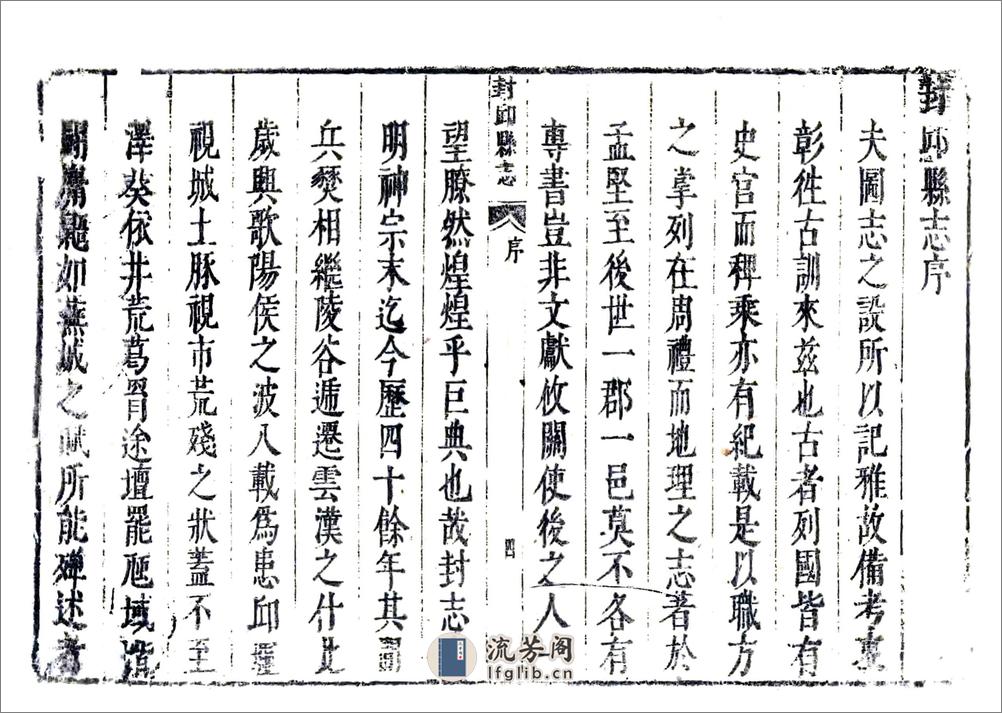 封邱縣志序
夫圖志之設所以記雅故備考衷
彰徃古訓來兹也古者列國皆有
史官而稗乘亦有紀載是以職方
之掌列在周禮而地理之志著於
孟堅至後世一郡一邑莫不各有
專書豈非文獻攸關使後之人一
封邱縣志
序
四
望瞭然煌煌乎巨典也哉封志
明神宗末迄今歷四十餘年其間
兵燹相繼陵谷遞遷雲漢之什比
歲興歌陽侯之波八載為患邱
視城土豚視市荒殘之狀蓋不至
澤葵依井荒葛罥途壇羅虺蜮階
鬬麏鼯如蕪城之賦所能殫述者
流芳阁
lfglib.cn